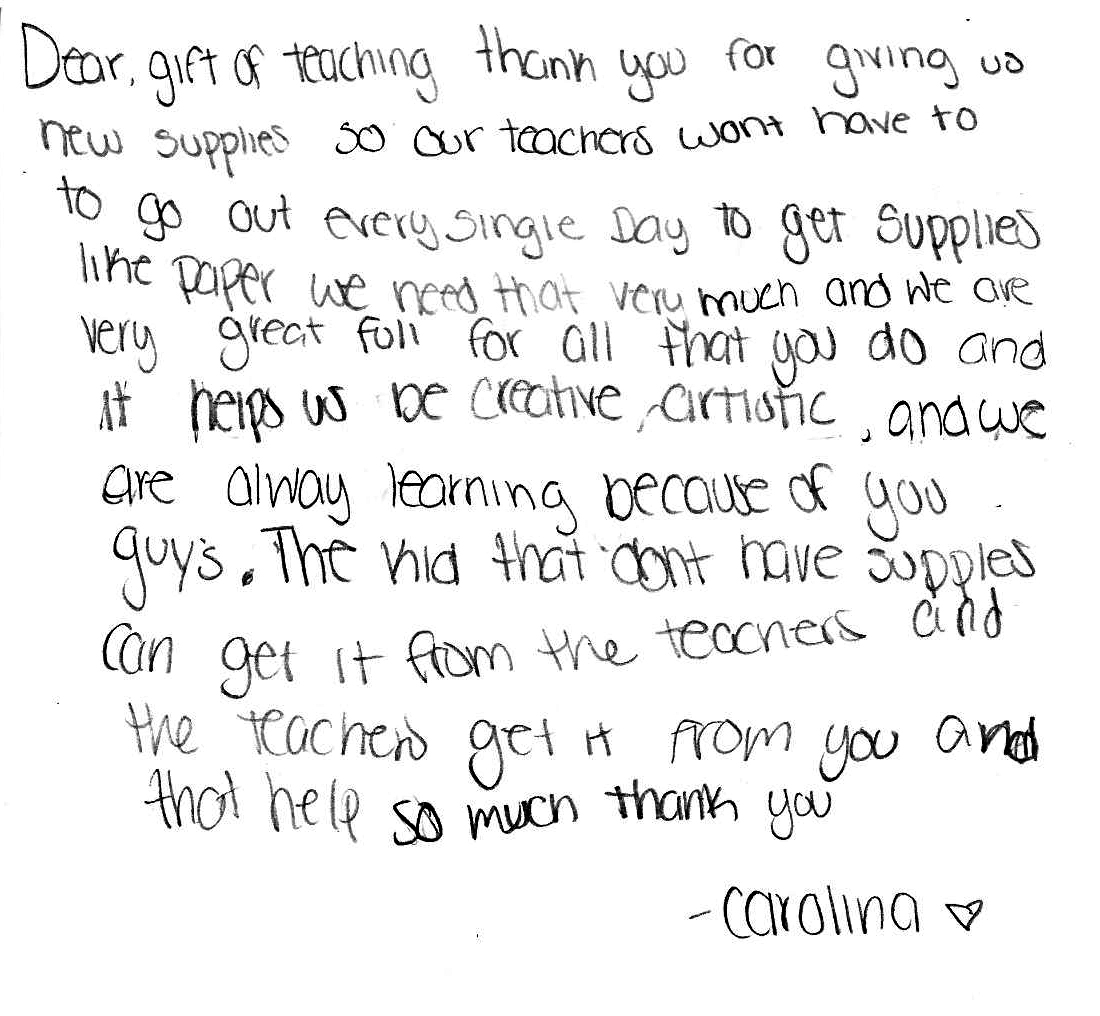 Dear, gift of teaching thank you for giving us
new supplies so our teachers wont have to
to go out every single Day to get supplies
like paper we need that very much and we are
very great full for all that you do and
it helps us be creative, artistic, and we
are alway learning because of you
guy's. The kid that dont have supples
can get it from the teachers and
the teachers get it from you and
that help so much thank you
-Carolina ♡